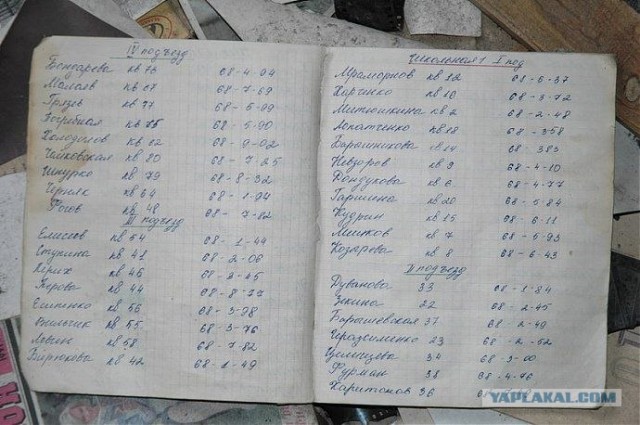 IV подъезд
Бондарева кв 73 68-4-94
Мамаев кв 67 68-7-69
кв 77 68-5-99
Погребная кв 75 68-5-90
Холодилов кв 62 68-9-02
Чайковская кв 80 68-7-25
Шкурко кв 79 68-8-32
Черняк кв 64 68-1-94
Рогов кв 48 68-7-82
III подъезд
Елисеев кв 54 68-1-44
Ступина кв 41 68-2-06
кв 46 68-2-45
кв 44
Ешпенко кв 56 68-3-98
кв 55 68-3-76
Львин кв 58 68-7-82
Бирюкова кв 42 68-1-49
Школьная 1 I под
Мраморнов кв 12 68-6-37
Харченко кв 10 68-3-72
Митюшкина кв 2 68-2-48
Лопатченко кв 18 68-358
Барашникова кв 14 68-383
Невзоров кв 3 68-4-10
Дондукова кв 6 68-4-77
Гаршина кв 20 68-5-84
Кудрин кв 15 68-6-11
Митков кв 7 68-5-93
Козарева кв 8 68-6-43
II подъезд
Дуванова 33 68-1-84
Зекина 22 68-2-45
Барашевская 37 68-2-49
Герасименко 23 68-2-52
34 68-3-00
Фурман 38 68-4-76
Харитонов 36
YAPLAKAL.COM